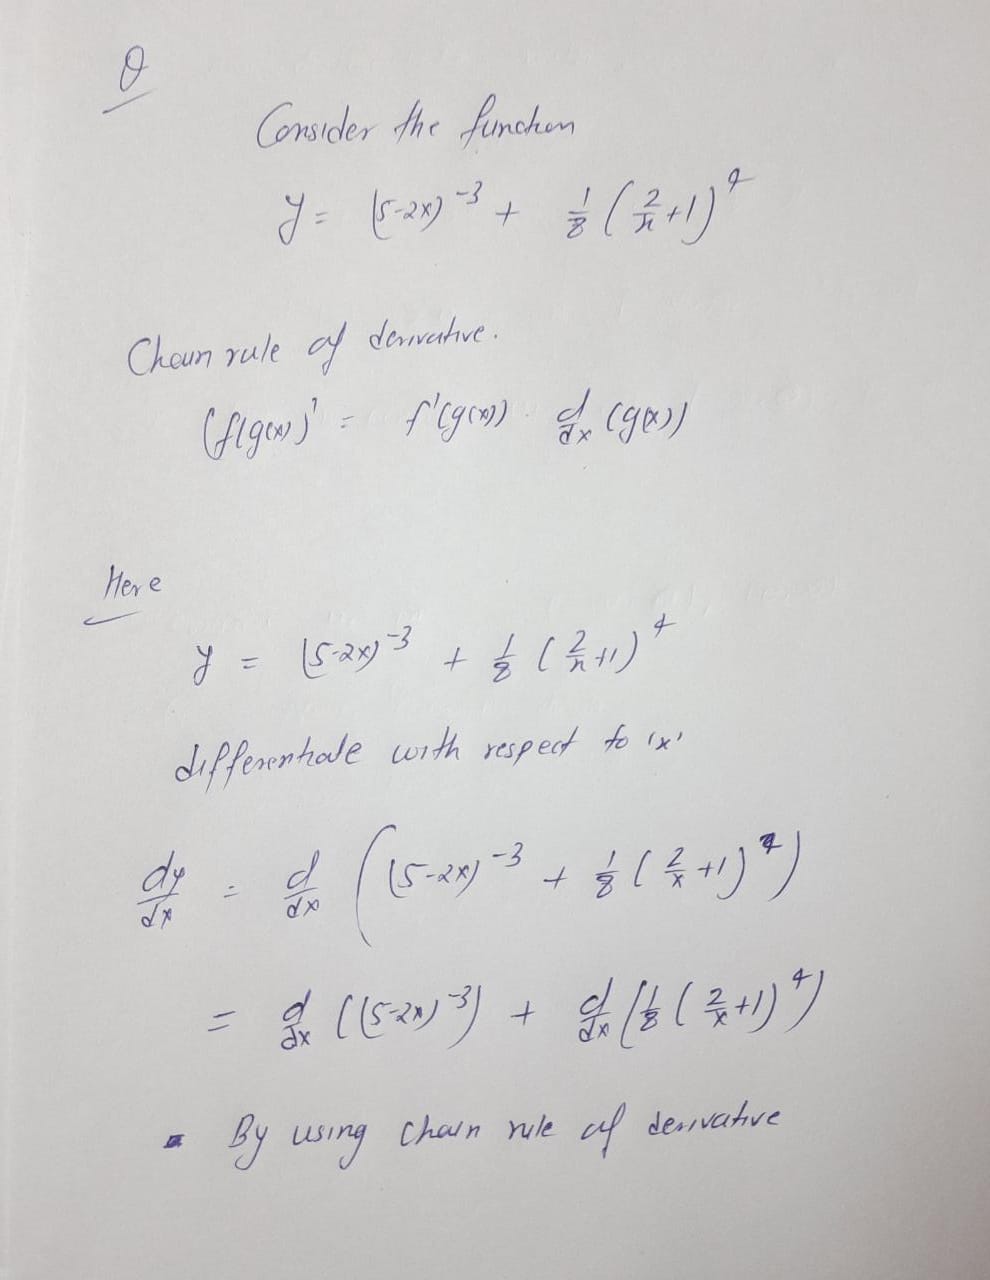 Q
Consider the function
y = (5-2x)^-3 + 1/8 (2/x + 1)^4
Chain rule of derivative.
(f(g(x))' = f'(g(x)) · d/dx (g(x))
Here
y = (5-2x)^-3 + 1/8 (2/x + 1)^4
differentiate with respect to 'x'
dy/dx = d/dx ((5-2x)^-3 + 1/8 (2/x + 1)^4)
= d/dx ((5-2x)^-3) + d/dx (1/8 (2/x + 1)^4)
By using chain rule of derivative